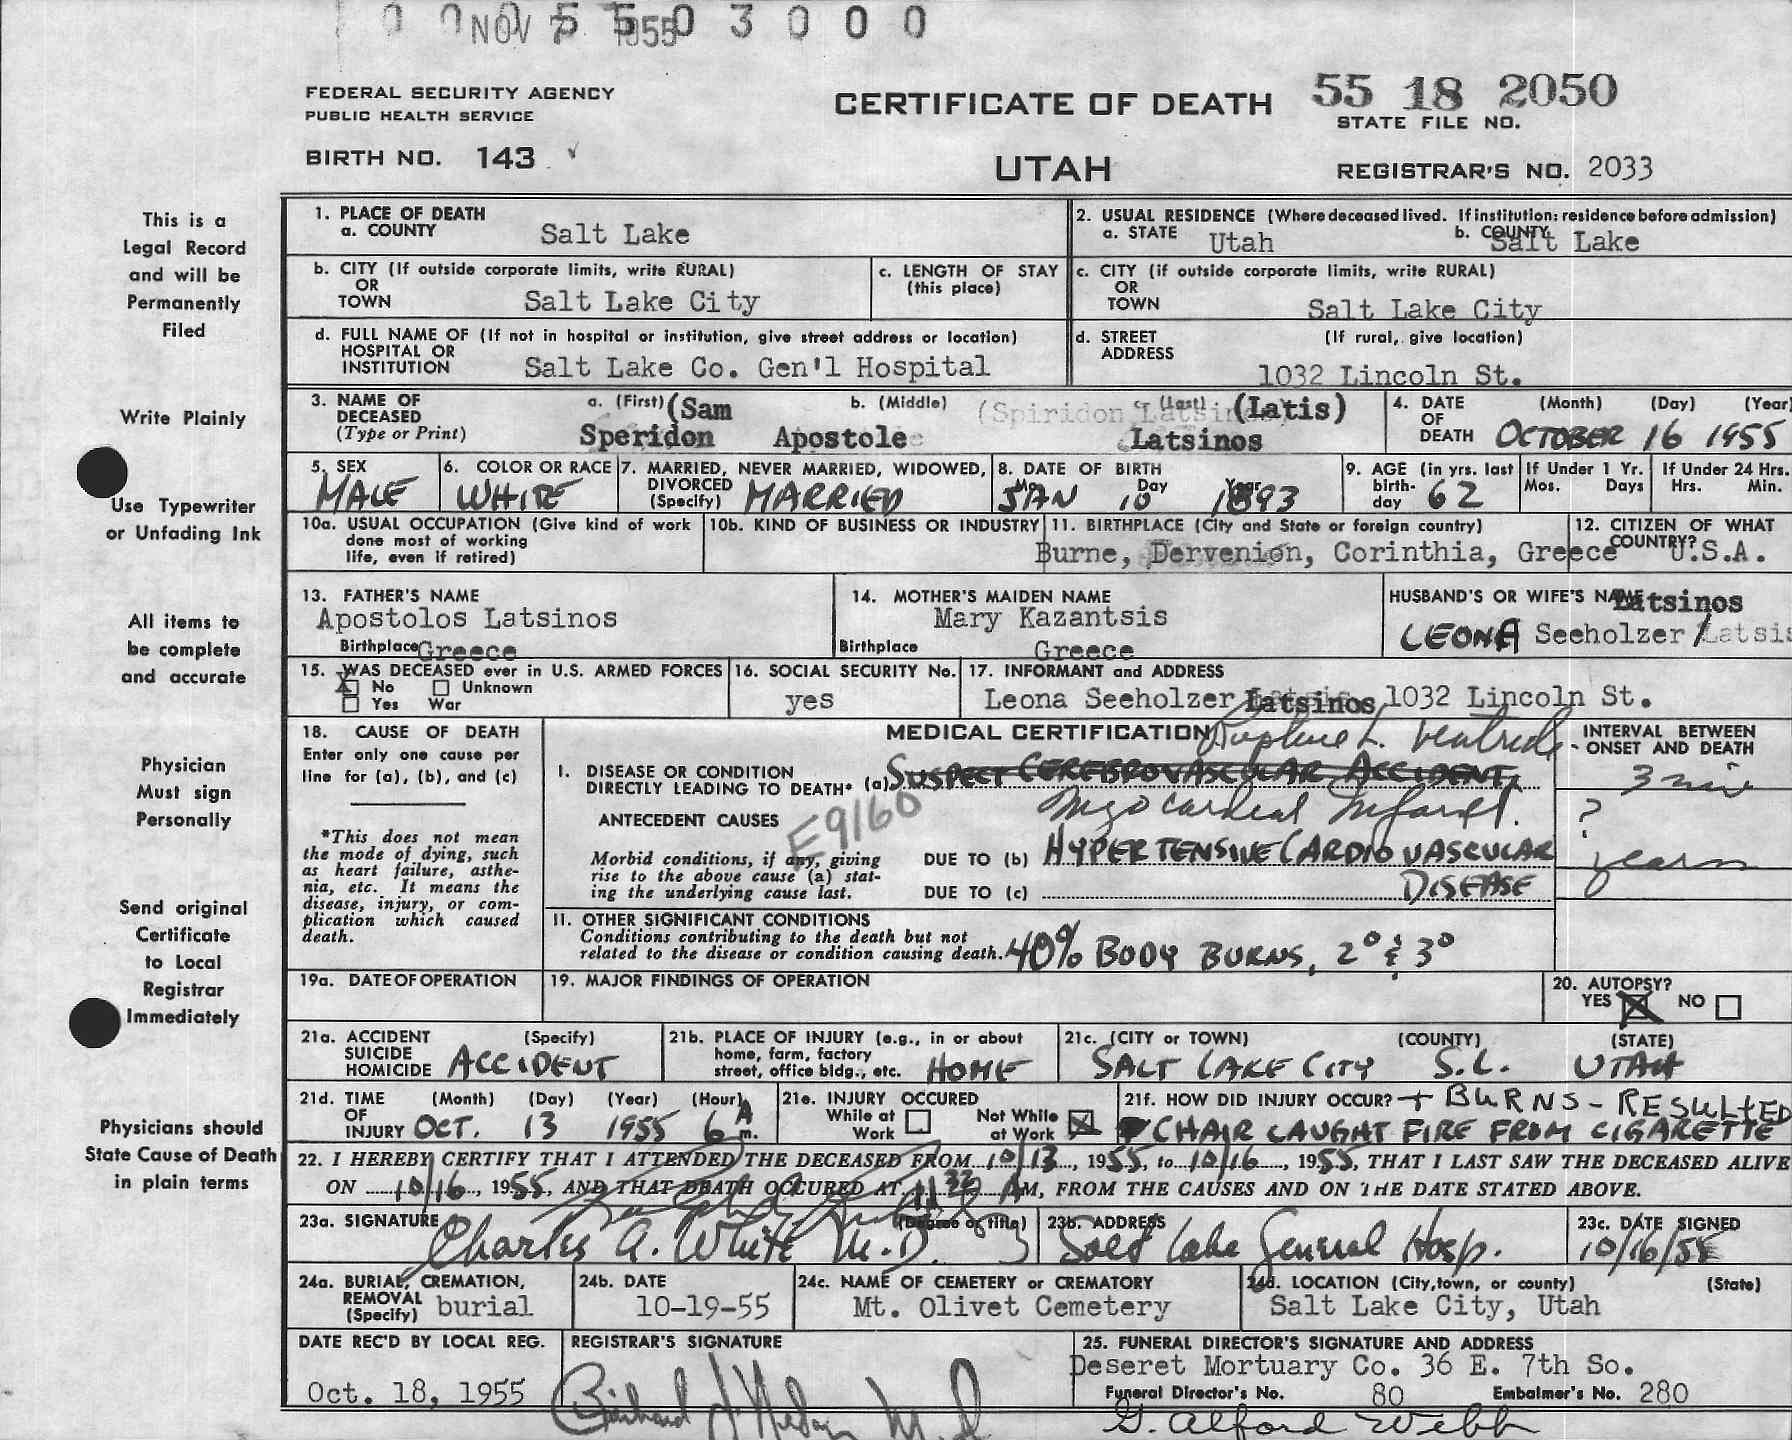 0 0 0 5 5 0 3 0 0 0
NOV 7 1955
FEDERAL SECURITY AGENCY
PUBLIC HEALTH SERVICE
BIRTH NO. 143
CERTIFICATE OF DEATH
UTAH
55 18 2050
STATE FILE NO.
REGISTRAR'S NO. 2033
This is a
Legal Record
and will be
Permanently
Filed
Write Plainly
Use Typewriter
or Unfading Ink
All items to
be complete
and accurate
Physician
Must sign
Personally
Send original
Certificate
to Local
Registrar
Immediately
Physicians should
State Cause of Death
in plain terms
1. PLACE OF DEATH
a. COUNTY Salt Lake
2. USUAL RESIDENCE (Where deceased lived. If institution: residence before admission)
a. STATE Utah b. COUNTY Salt Lake
b. CITY (If outside corporate limits, write RURAL)
OR
TOWN Salt Lake City
c. LENGTH OF STAY
(this place)
c. CITY (if outside corporate limits, write RURAL)
OR
TOWN Salt Lake City
d. FULL NAME OF (If not in hospital or institution, give street address or location)
HOSPITAL OR
INSTITUTION Salt Lake Co. Gen'l Hospital
d. STREET (If rural, give location)
ADDRESS
1032 Lincoln St.
3. NAME OF DECEASED
(Type or Print)
a. (First) (Sam b. (Middle) (Spiridon Latsinos c. (Last) (Latis)
Speridon Apostole Latsinos
4. DATE OF DEATH (Month) (Day) (Year)
OCTOBER 16 1955
5. SEX
MALE
6. COLOR OR RACE
WHITE
7. MARRIED, NEVER MARRIED, WIDOWED,
DIVORCED
(Specify) MARRIED
8. DATE OF BIRTH
Mo. Day Year
JAN 10 1893
9. AGE (in yrs. last
birth-
day 62
If Under 1 Yr.
Mos. Days
If Under 24 Hrs.
Hrs. Min.
10a. USUAL OCCUPATION (Give kind of work
done most of working
life, even if retired)
10b. KIND OF BUSINESS OR INDUSTRY
11. BIRTHPLACE (City and State or foreign country)
Burne, Dervenion, Corinthia, Greece
12. CITIZEN OF WHAT
COUNTRY? U.S.A.
13. FATHER'S NAME
Apostolos Latsinos
Birthplace Greece
14. MOTHER'S MAIDEN NAME
Mary Kazantsis
Birthplace Greece
HUSBAND'S OR WIFE'S NAME Latsinos
LEONA Seeholzer / Latsis
15. WAS DECEASED ever in U.S. ARMED FORCES
X No Unknown
Yes War
16. SOCIAL SECURITY No.
yes
17. INFORMANT and ADDRESS
Leona Seeholzer Latsinos 1032 Lincoln St.
18. CAUSE OF DEATH
Enter only one cause per
line for (a), (b), and (c)
*This does not mean
the mode of dying, such
as heart failure, asthe-
nia, etc. It means the
disease, injury, or com-
plication which caused
death.
MEDICAL CERTIFICATION Rupture L. Ventricle
INTERVAL BETWEEN
ONSET AND DEATH
I. DISEASE OR CONDITION
DIRECTLY LEADING TO DEATH* (a) SUSPECT CEREBROVASCULAR ACCIDENT 3 min
Myocardial Infarct. ?
ANTECEDENT CAUSES
E9160
Morbid conditions, if any, giving
rise to the above cause (a) stat-
ing the underlying cause last.
DUE TO (b) HYPERTENSIVE CARDIOVASCULAR years
DUE TO (c) DISEASE
II. OTHER SIGNIFICANT CONDITIONS
Conditions contributing to the death but not
related to the disease or condition causing death. 40% BODY BURNS, 2° & 3°
19a. DATE OF OPERATION
19. MAJOR FINDINGS OF OPERATION
20. AUTOPSY?
YES X NO
21a. ACCIDENT (Specify)
SUICIDE
HOMICIDE ACCIDENT
21b. PLACE OF INJURY (e.g., in or about
home, farm, factory
street, office bldg., etc. HOME
21c. (CITY OR TOWN) (COUNTY) (STATE)
SALT LAKE CITY S.L. UTAH
21d. TIME (Month) (Day) (Year) (Hour)
OF
INJURY OCT. 13 1955 6 A m.
21e. INJURY OCCURED
While at Work Not While at Work X
21f. HOW DID INJURY OCCUR? + BURNS - RESULTED
CHAIR CAUGHT FIRE FROM CIGARETTE
22. I HEREBY CERTIFY THAT I ATTENDED THE DECEASED FROM 10/13, 1955, to 10/16, 1955, THAT I LAST SAW THE DECEASED ALIVE
ON 10/16, 1955, AND THAT DEATH OCCURED AT 11 32 AM, FROM THE CAUSES AND ON THE DATE STATED ABOVE.
23a. SIGNATURE (Degree or title)
Charles A. White M.D.
23b. ADDRESS
Salt Lake General Hosp.
23c. DATE SIGNED
10/16/55
24a. BURIAL, CREMATION,
REMOVAL
(Specify) burial
24b. DATE
10-19-55
24c. NAME OF CEMETERY or CREMATORY
Mt. Olivet Cemetery
24d. LOCATION (City, town, or county) (State)
Salt Lake City, Utah
DATE REC'D BY LOCAL REG.
Oct. 18, 1955
REGISTRAR'S SIGNATURE
M.D.
25. FUNERAL DIRECTOR'S SIGNATURE AND ADDRESS
Deseret Mortuary Co. 36 E. 7th So.
Funeral Director's No. 80 Embalmer's No. 280
G. Alford Webb